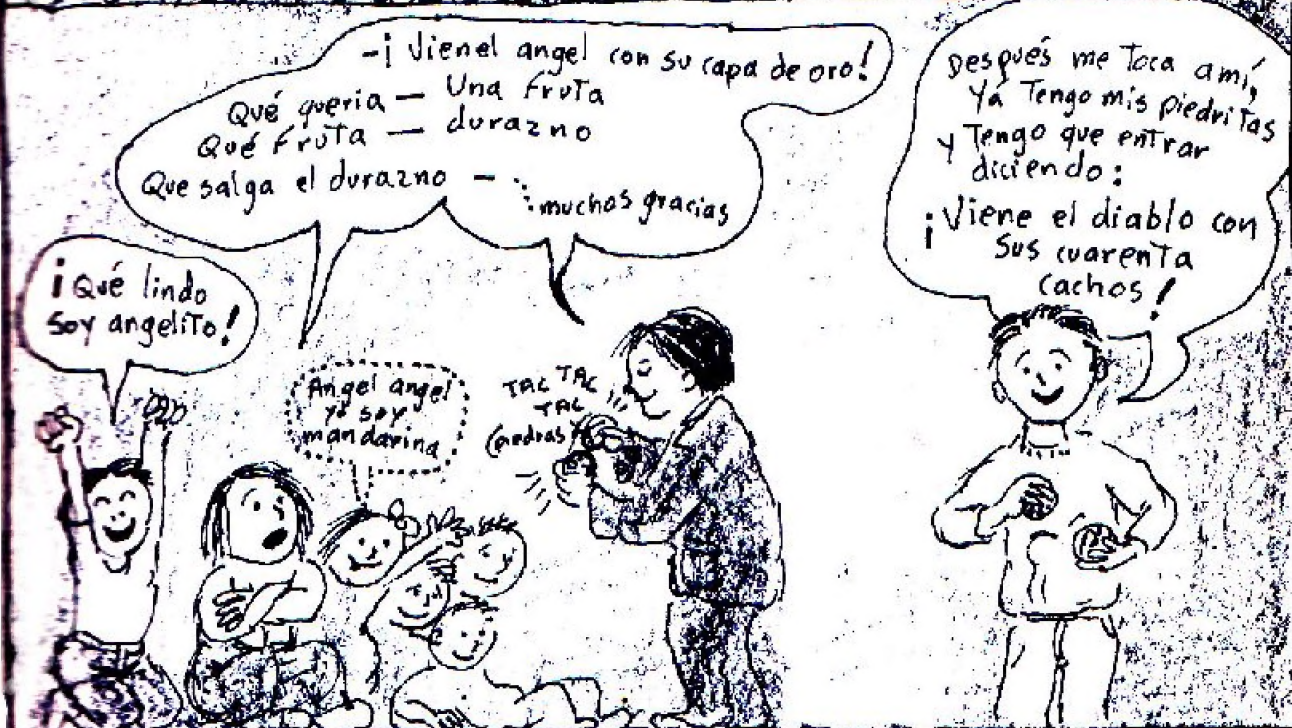 ¡Qué lindo
soy angelito!
-¡Vienel angel con su capa de oro!
Qué queria — Una fruta
Qué fruta — durazno
Que salga el durazno —
muchas gracias
Angel angel
yo soy
mandarina
TAC TAC
TAC
(piedras)
Después me toca a mí,
Yá Tengo mis piedritas
y Tengo que entrar
diciendo:
¡Viene el diablo con
sus cuarenta
cachos!